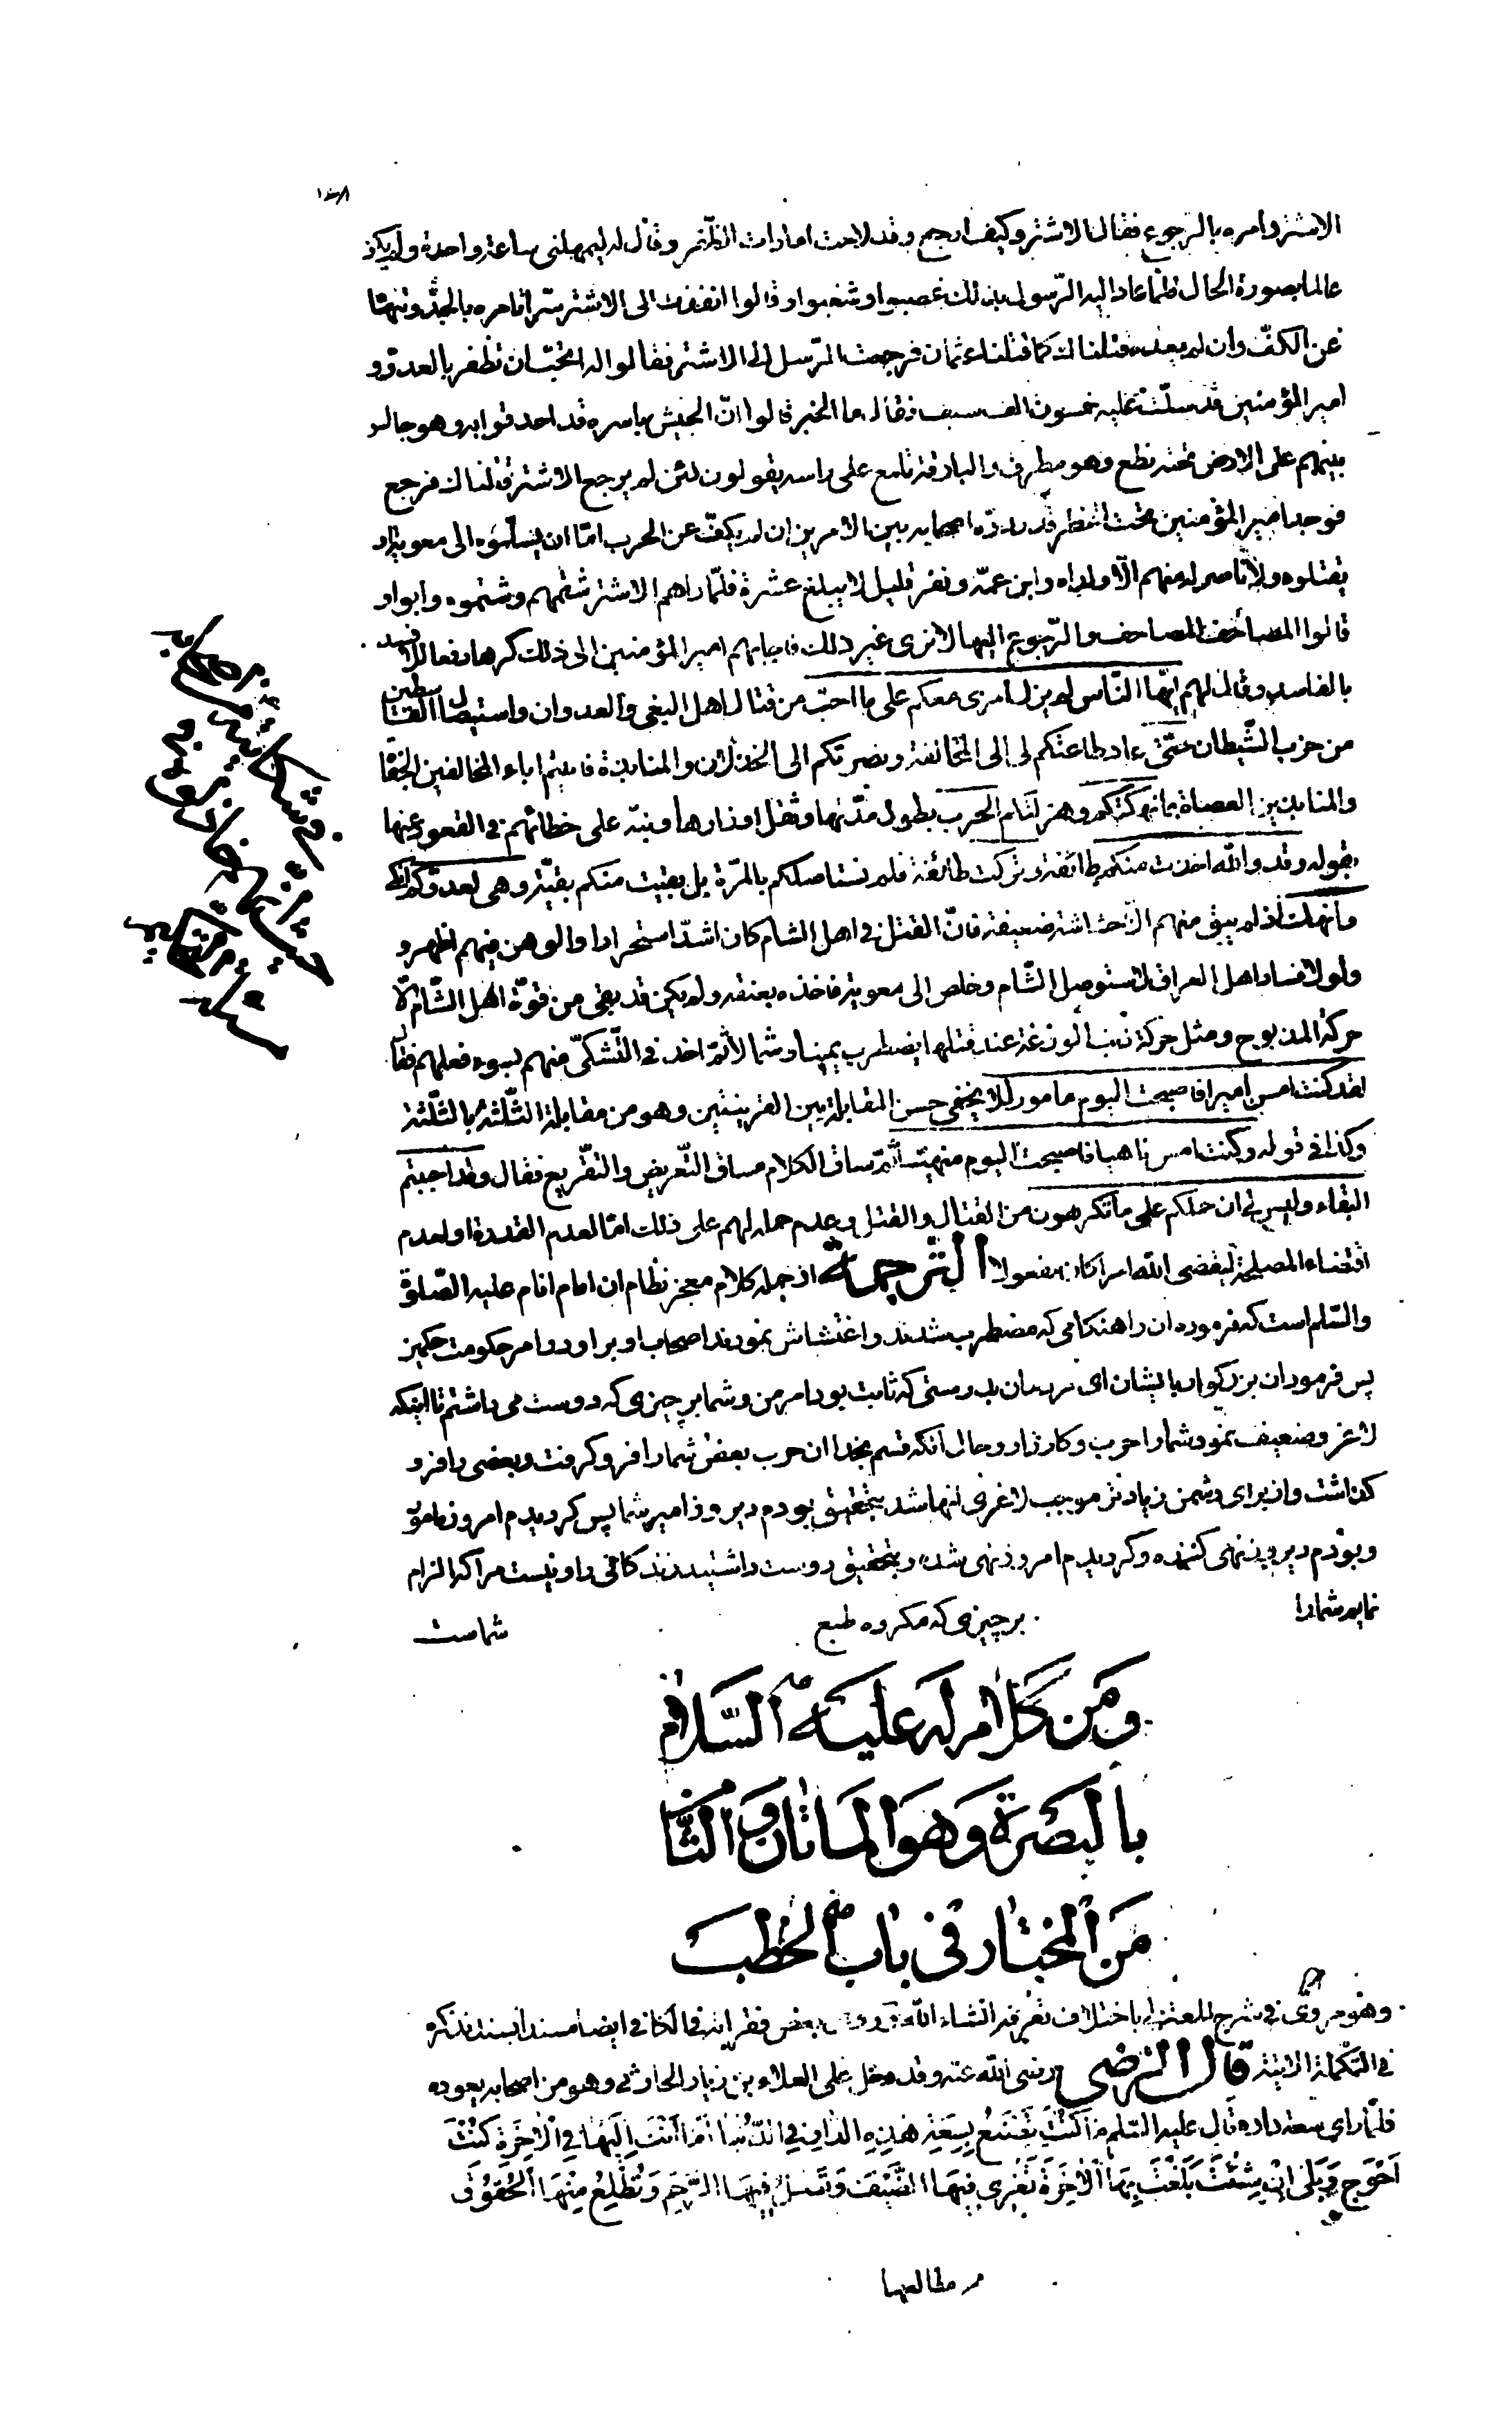 الاشتر وامره بالرجوع فقال الاشتر وكيف ارجع وقد لاحت امارات الظّفر وقال له ليمهلنى ساعة واحدة ولم يكن
عالما بصورة الحال فلمّا عاد اليه الرّسول بذلك غضبوا وشغبوا وقالوا انفذت الى الاشتر سرّا تامره بالجدّ وتنهيه
عن الكفّ وان لم يعد قتلناك كما قتلنا عثمان فرجعت الرّسل الى الاشتر فقالوا له اتحبّ ان تظفر بالعدوّ و
امير المؤمنين قد سلّت عليه خمسون الف سيف فقال ما الخبر قالوا انّ الجيش باسره قد احدقوا به وهو جالس
بينهم على الارض تحته نطع وهو مطرق والبارقة تلمع على راسه يقولون لئن لم يرجع الاشتر قتلناك فرجع
فوجد امير المؤمنين تحت الخطر قد ردّده اصحابه بين الامرين ان لم يكفّ عن الحرب امّا ان يسلّموه الى معوية او
يقتلوه ولا ناصر له منهم الّا ولداه وابن عمّه ونفر قليل لا يبلغ عشرة فلمّا راهم الاشتر شتمهم وشتموه وابوا و
قالوا المصاحف المصاحف والرّجوع اليها لا نرى غير ذلك فاجابهم امير المؤمنين الى ذلك كرها دفعا للافسد
بالفاسد وقال لهم ايّها النّاس لم يزل امرى معكم على ما احبّ من قتال اهل البغى والعدوان واستيصال القاسطين
من حزب الشّيطان حتّى عاد طاعتكم لى الى المخالفة ونصرتكم الى الخذلان والمنابذة فابيتم اباء المخالفين الجفاة
والمنابذين العصاة نهكتكم وهزلتكم الحرب بطول مدّتها وثقل اوزارها ونبّه على خطائهم فى القعود عنها
بقوله وقد والله اخذت منكم طائفة وتركت طائفة فلم تستاصلكم بالمرّة بل بقيت منكم بقيّة وهى لعدوّكم انهك
وانهك اذ لم يبق منهم الّا حشاشة ضعيفة فانّ القتل فى اهل الشام كان اشدّ استحرارا والوهن فيهم اظهر و
ولولا فساد اهل العراق لاستوصل الشّام وخلص الى معوية فاخذه بعنقه ولم يكن قد بقى من قوّة اهل الشّام الّا
حركة المذبوح ومثل حركة ذنب الوزغة عند قتلها يضطرب يمينا وشمالا ثمّ اخذ فى التّشكّى منهم بسوء فعلهم فقال
لقد كنت امس اميرا فاصبحت اليوم مامورا لا يخفى حسن المقابلة بين القرينتين وهو من مقابلة الثّلثة بالثّلثة
وكذا فى قوله وكنت امس ناهيا فاصبحت اليوم منهيّا ثمّ ساق الكلام مساق التّعريض والتقريع فقال وقد احببتم
البقاء وليس لى ان حملكم على ما تكرهون من القتال والقتل وعدم حمله لهم على ذلك امّا لعدم القدرة او لعدم
اقتضاء المصلحة ليقضى الله امرا كان مفعولا الترجمة از جمله كلام معجز نظام ان امام انام عليه الصّلوة
والسّلم است كه فرموده ان را هنكامى كه مضطرب شدند واغتشاش نمودند اصحاب او بر او در امر حكومت حكمين
پس فرمود ان بزركوار بايشان اى مردمان بدرستى كه ثابت بود امر من وشما بر چيزى كه دوست مى داشتم تا اينكه
لاغر وضعيف نمود شما را حرب وكارزار وحال آنكه قسم بخدا ان حرب بعض شما را فرو كرفت وبعضى را فرو
كذاشت واز براى دشمن زيادتر موجب لاغرى انها شد بتحقيق بودم ديروز امير شما پس كرديدم امروز مامور
وبودم ديروز نهى كننده وكرديدم امروز نهى شده وبتحقيق دوست داشتيد زندكانى را ونيست مرا كه الزام
نمايم شما را بر چيزى كه مكروه طبع شماست
ومن كلام له عليه السّلام
بالبصرة وهو المأتان والثّامن
من المختار فى باب الخطب
وهو مروىّ فى شرح المعتزلى باختلاف تعرفه انشاء الله بعض فقراته فى الكافى ايضا مسندا بسند نذكره
فى التكملة الاتية قال الرّضى رضى الله عنه وقد دخل على العلاء بن زياد الحارثى وهو من اصحابه يعوده
فلمّا راى سعة داره قال عليه السّلم ما كُنْتَ تَصْنَعُ بِسَعَةِ هذِهِ الدّارِ فِى الدُّنْيا أَمَا أَنْتَ إِلَيْها فِى الْآخِرَةِ كُنْتَ
أَحْوَجَ وَبَلى إِنْ شِئْتَ بَلَغْتَ بِهَا الْآخِرَةَ تَقْرِى فيهَا الضَّيْفَ وَتَصِلُ فيهَا الرَّحِمَ وَتُطْلِعُ مِنْهَا الْحُقُوقَ
مطالعها